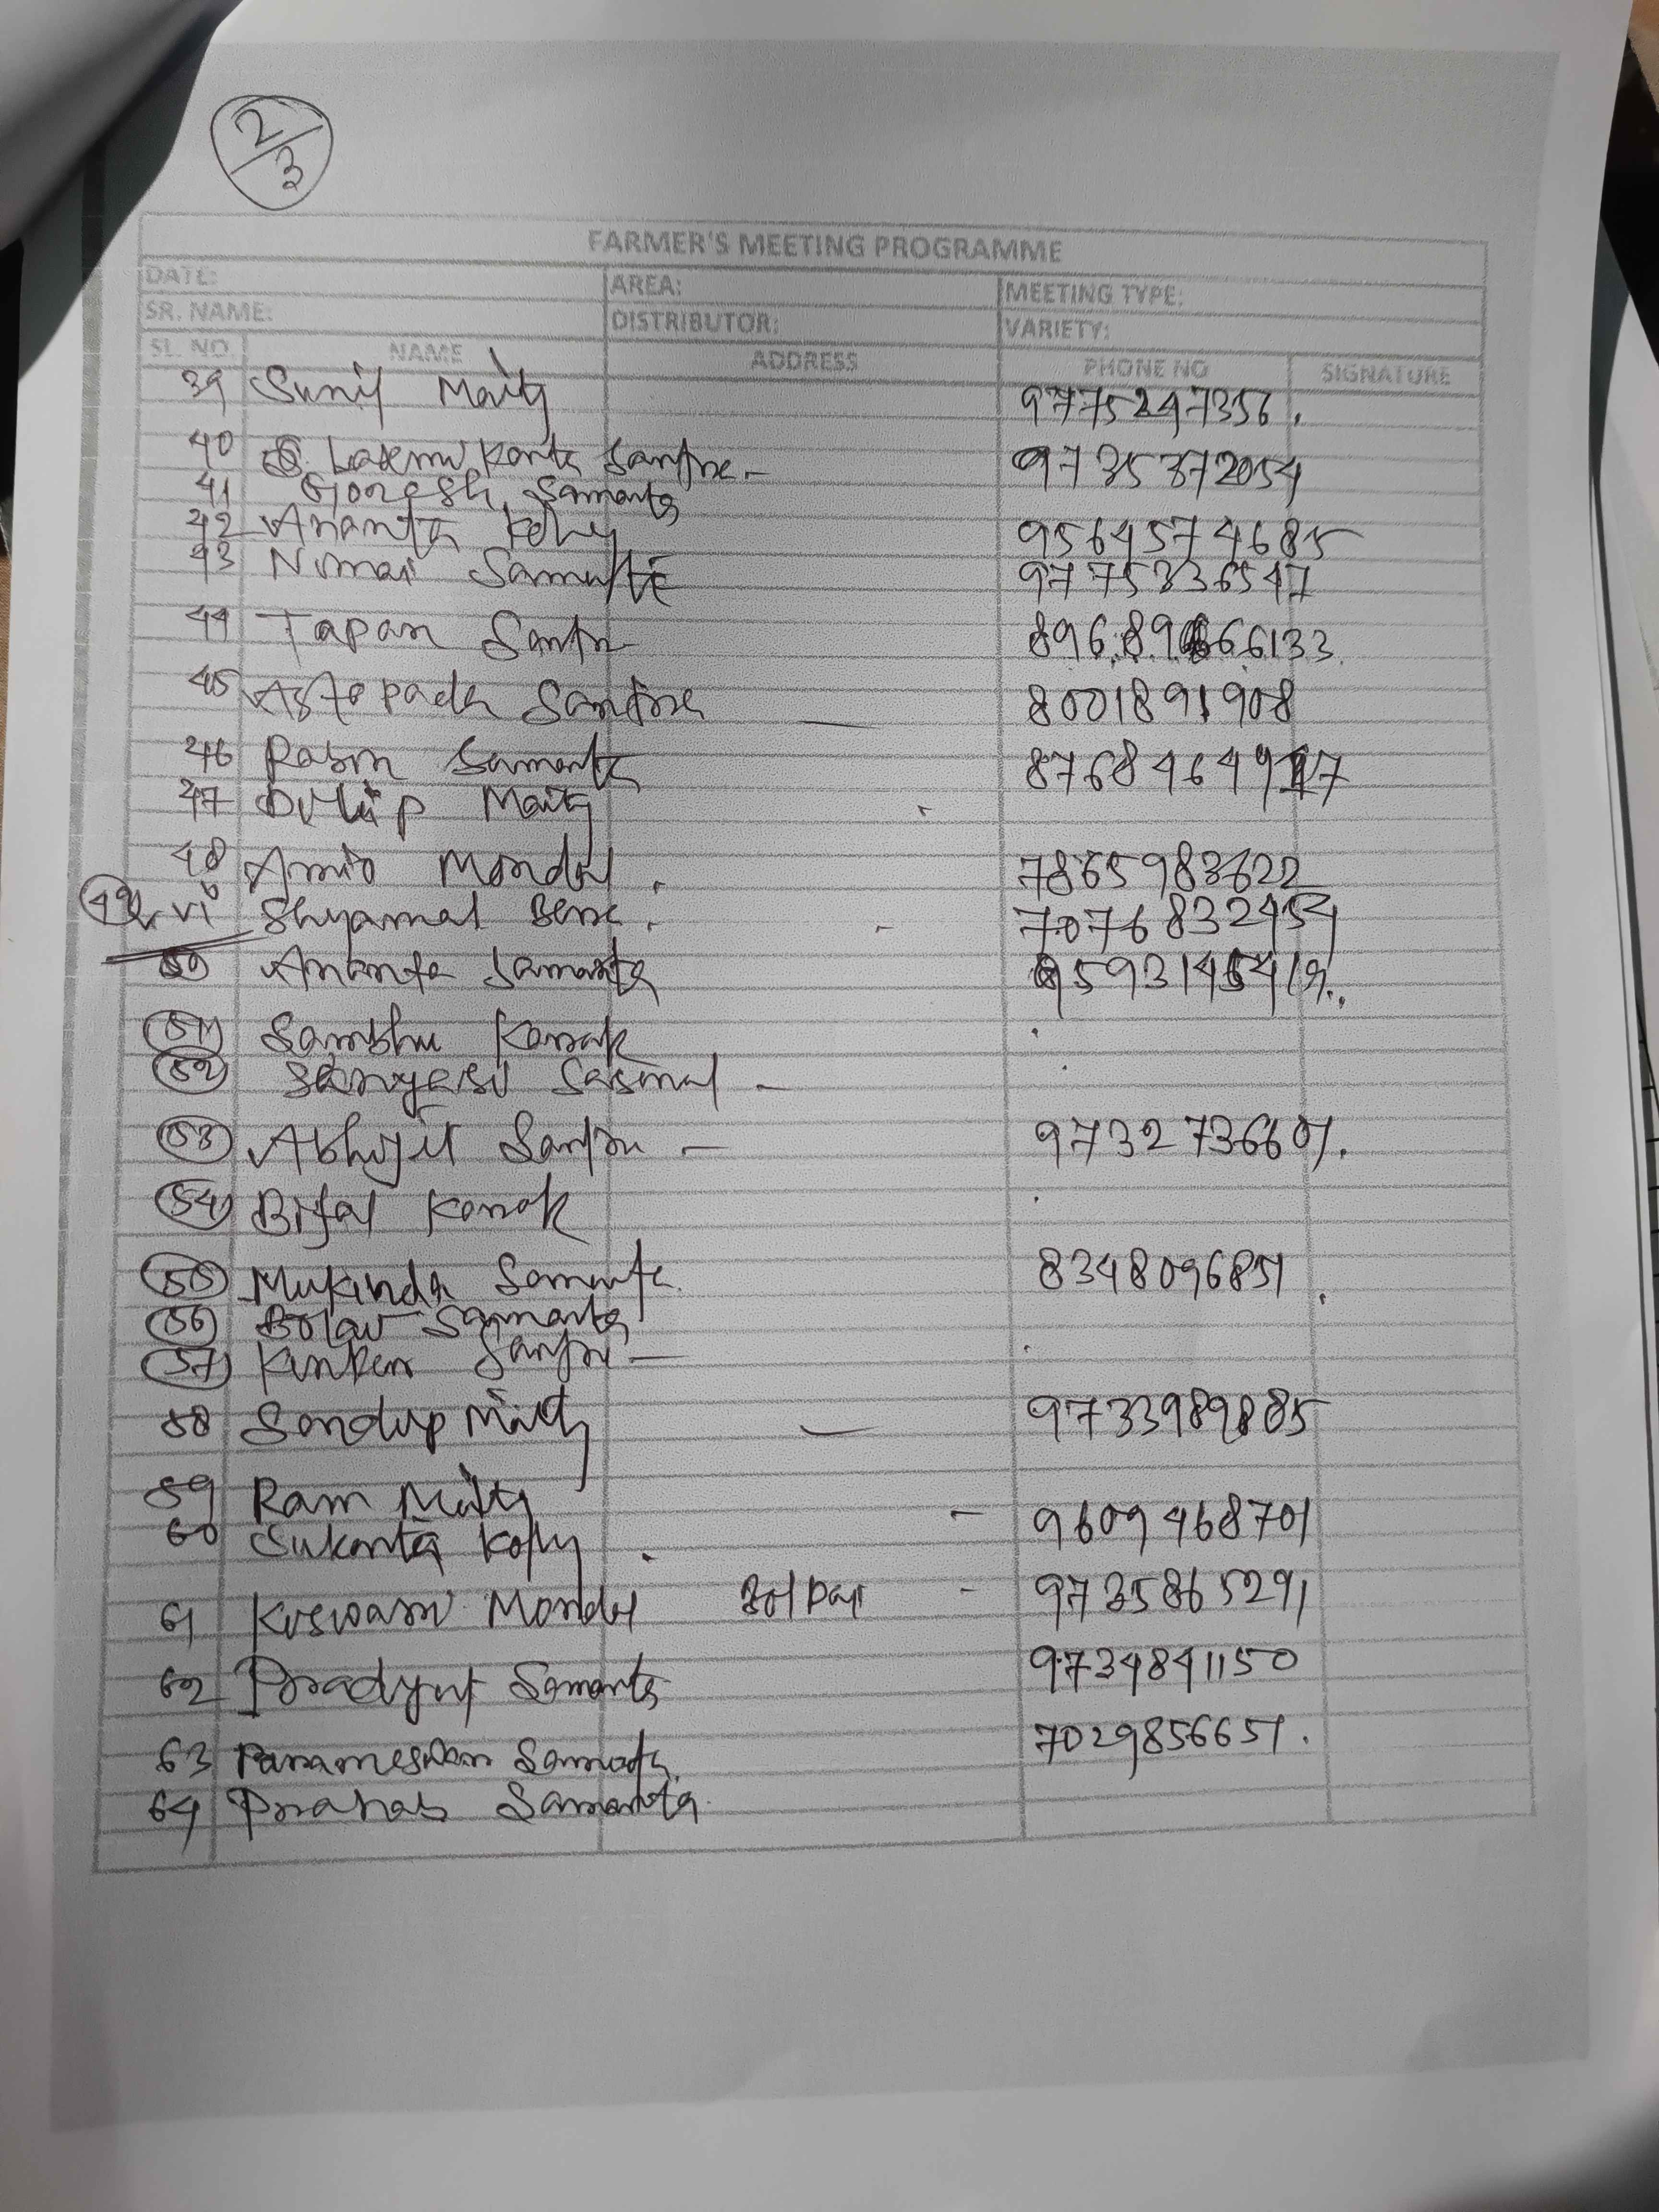 2/3
FARMER'S MEETING PROGRAMME
DATE: AREA: MEETING TYPE:
SR. NAME: DISTRIBUTOR: VARIETY:
SL. NO. NAME ADDRESS PHONE NO SIGNATURE
39 Sunil Maity 9775247356.
40 Laxmi Kanta Santra - 9735372054
41 Goresh Samanta
42 Ananta 9564574685
43 Nimai 9775336547
44 Tapan Santra
45 Astopada Santra — 8001891908
46 Rabin Samanta
47 Dilip Maity
48 Mondal. 7865983622
49 Shyamal Bera. - 7076832454
50 Ananta Samanta
51 Sambhu Karak
52 Sasmal -
53 Abhijit Santra - 9732736601.
54 Karak
55 Mukinda Samanta 8348096851.
56 Samanta
57 Kinkar Santra -
58 Sandip Maity — 9733989885
59 Ram Maity
60 Sukanta - 9609468701
61 Mondal - 9735865291
62 Pradyut Samanta 9734841150
63 Parameswar Samanta. 7029856651.
64 Samanta